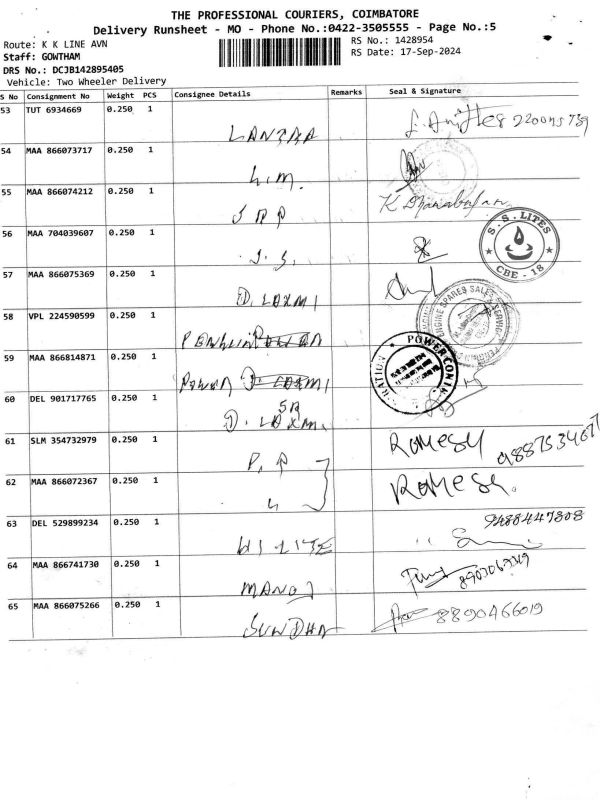 THE PROFESSIONAL COURIERS, COIMBATORE
Delivery Runsheet - MO - Phone No.:0422-3505555 - Page No.:5
Route: K K LINE AVN
RS No.: 1428954
Staff: GOWTHAM
RS Date: 17-Sep-2024
DRS No.: DCJB142895405
Vehicle: Two Wheeler Delivery
S No Consignment No Weight PCS Consignee Details Remarks Seal & Signature
53 TUT 6934669 0.250 1
54 MAA 866073717 0.250 1
55 MAA 866074212 0.250 1
56 MAA 704039607 0.250 1 J. S.
S. S. LITES
CBE - 18
57 MAA 866075369 0.250 1 D. LAXMI
ENGINE SPARES SALES & SERVICE
58 VPL 224590599 0.250 1
POWER CONT
59 MAA 866814871 0.250 1 POWER
60 DEL 901717765 0.250 1 D. LAXMI
61 SLM 354732979 0.250 1 P. P RAMESH
62 MAA 866072367 0.250 1 RAMESH.
63 DEL 529899234 0.250 1 HI LITE 9488447808
64 MAA 866741730 0.250 1 MANOJ
65 MAA 866075266 0.250 1 8890466019